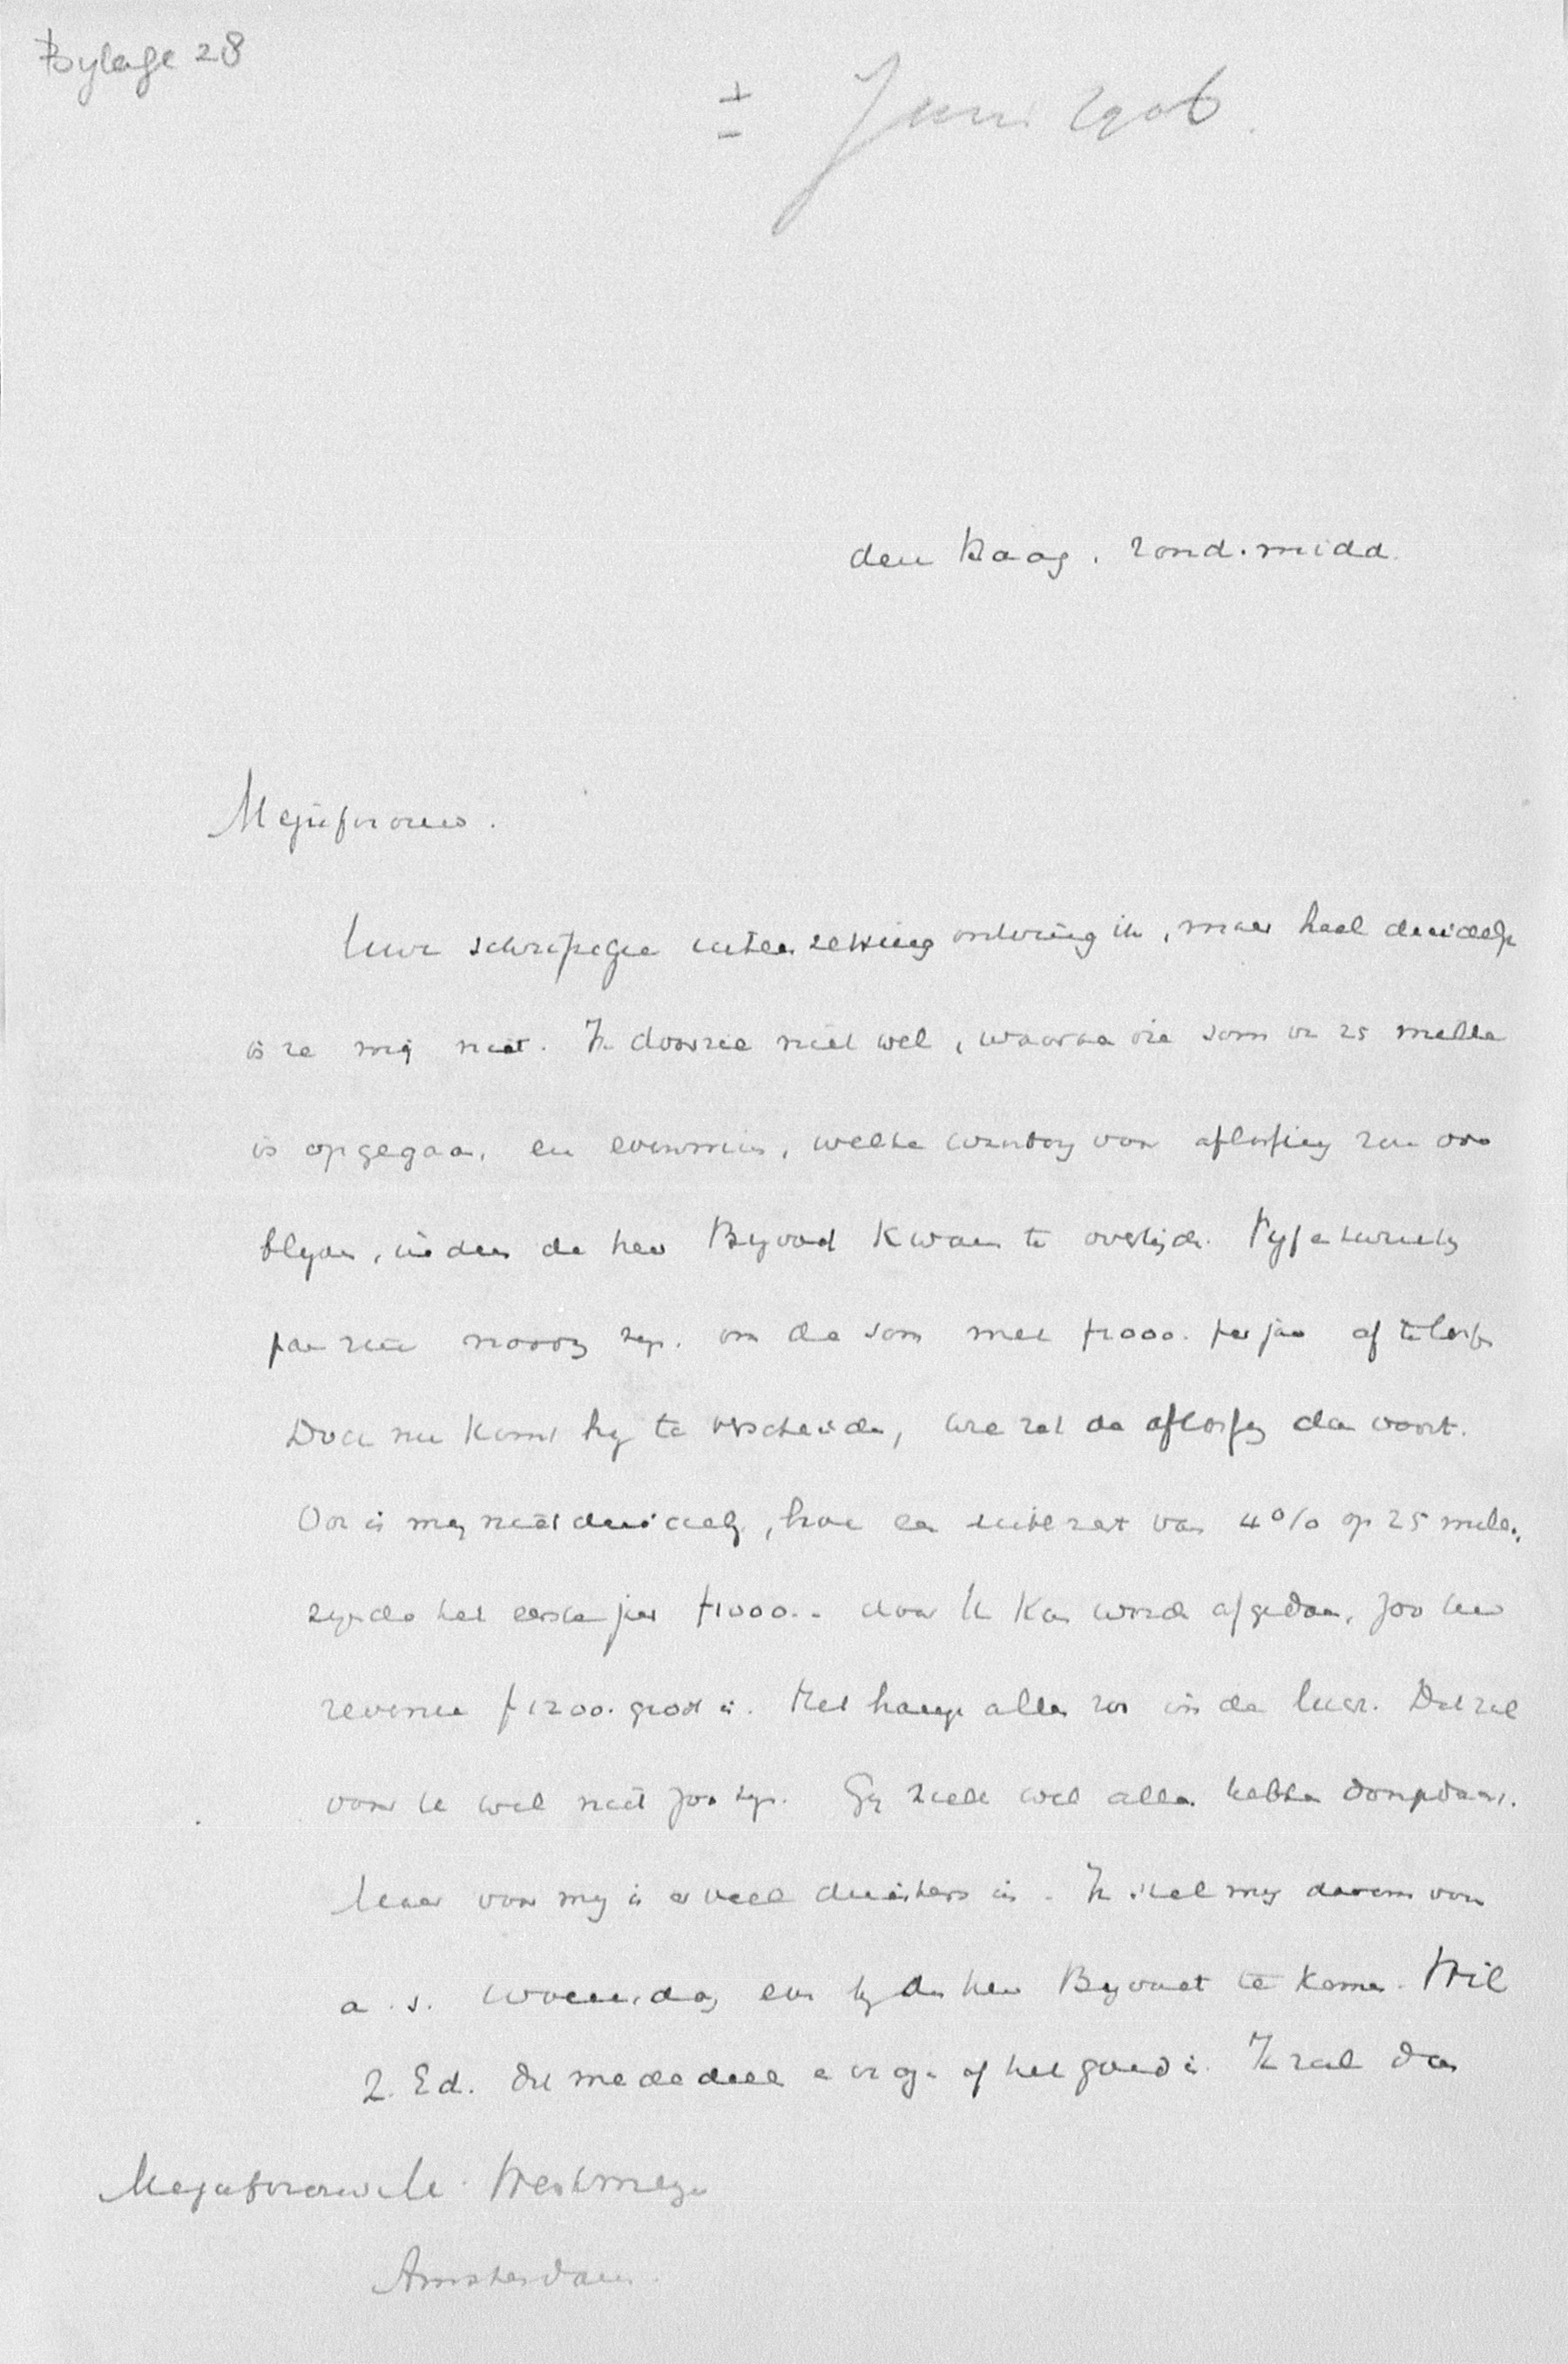 Bylage 28
± Juni 1906.
den Haag. Zond. midd.
Mejufvrouw.
Uwe schriftelijke uiteenzetting ontving ik, maar heel duidelijk
is ze mij niet. Ik doorzie niet wel, waaraan die som van 25 mille
is opgegaan, en evenmin, welke waarborg voor aflossing zou over
blijven, indien de heer Byvoet kwam te overlijden. Vijfentwintig
jaar zou noodig zijn om de som met f 1000. per jaar af te lossen
Doch nu komt hij te verscheiden, wie zet de aflossing dan voort.
Ook is mij niet duidelijk, hoe een interest van 4% op 25 mille,
zijnde het eerste jaar f 1000.- door U kan worden afgedaan, zoo uw
revenue f 1200. groot is. Het hangt alles zoo in de lucht. Dat zal
voor U wel niet zoo zijn. Gij zult wel alles hebben doorgedacht.
Maar voor mij is er veel duisters in. Ik stel mij daarom voor
a.s. Woensdag eens bij den heer Byvoet te komen. Wil
Z.Ed. dit mededeelen en vragen of het goed is. Ik zal dan
Mejufvrouw M. Westmeijer
Amsterdam.